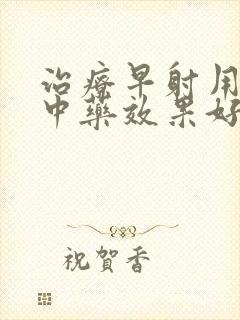 治療早射用
中藥效果好
祝賀香